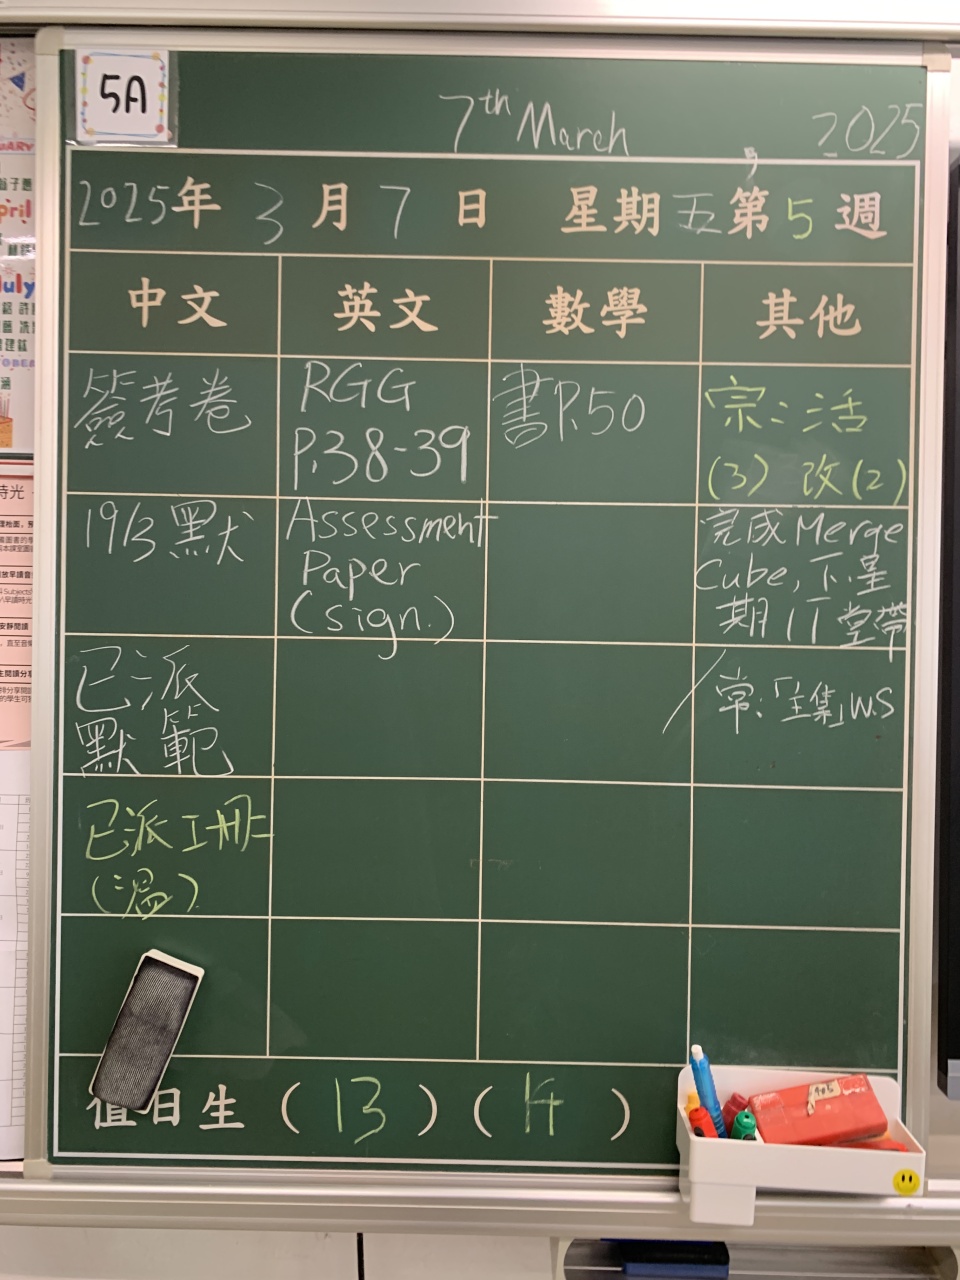 5A
7th March 2025
2025年3月7日 星期五第5週
中文 英文 數學 其他
簽考卷
RGG
P.38-39
書P.50
宗：活
(3) 改(2)
19/3 默
Assessment
Paper
(sign.)
完成Merge
Cube, 下星
期IT堂帶
已派
默範
常：「主集」W.S
已派工冊二
(溫)
值日生 (13) (14)